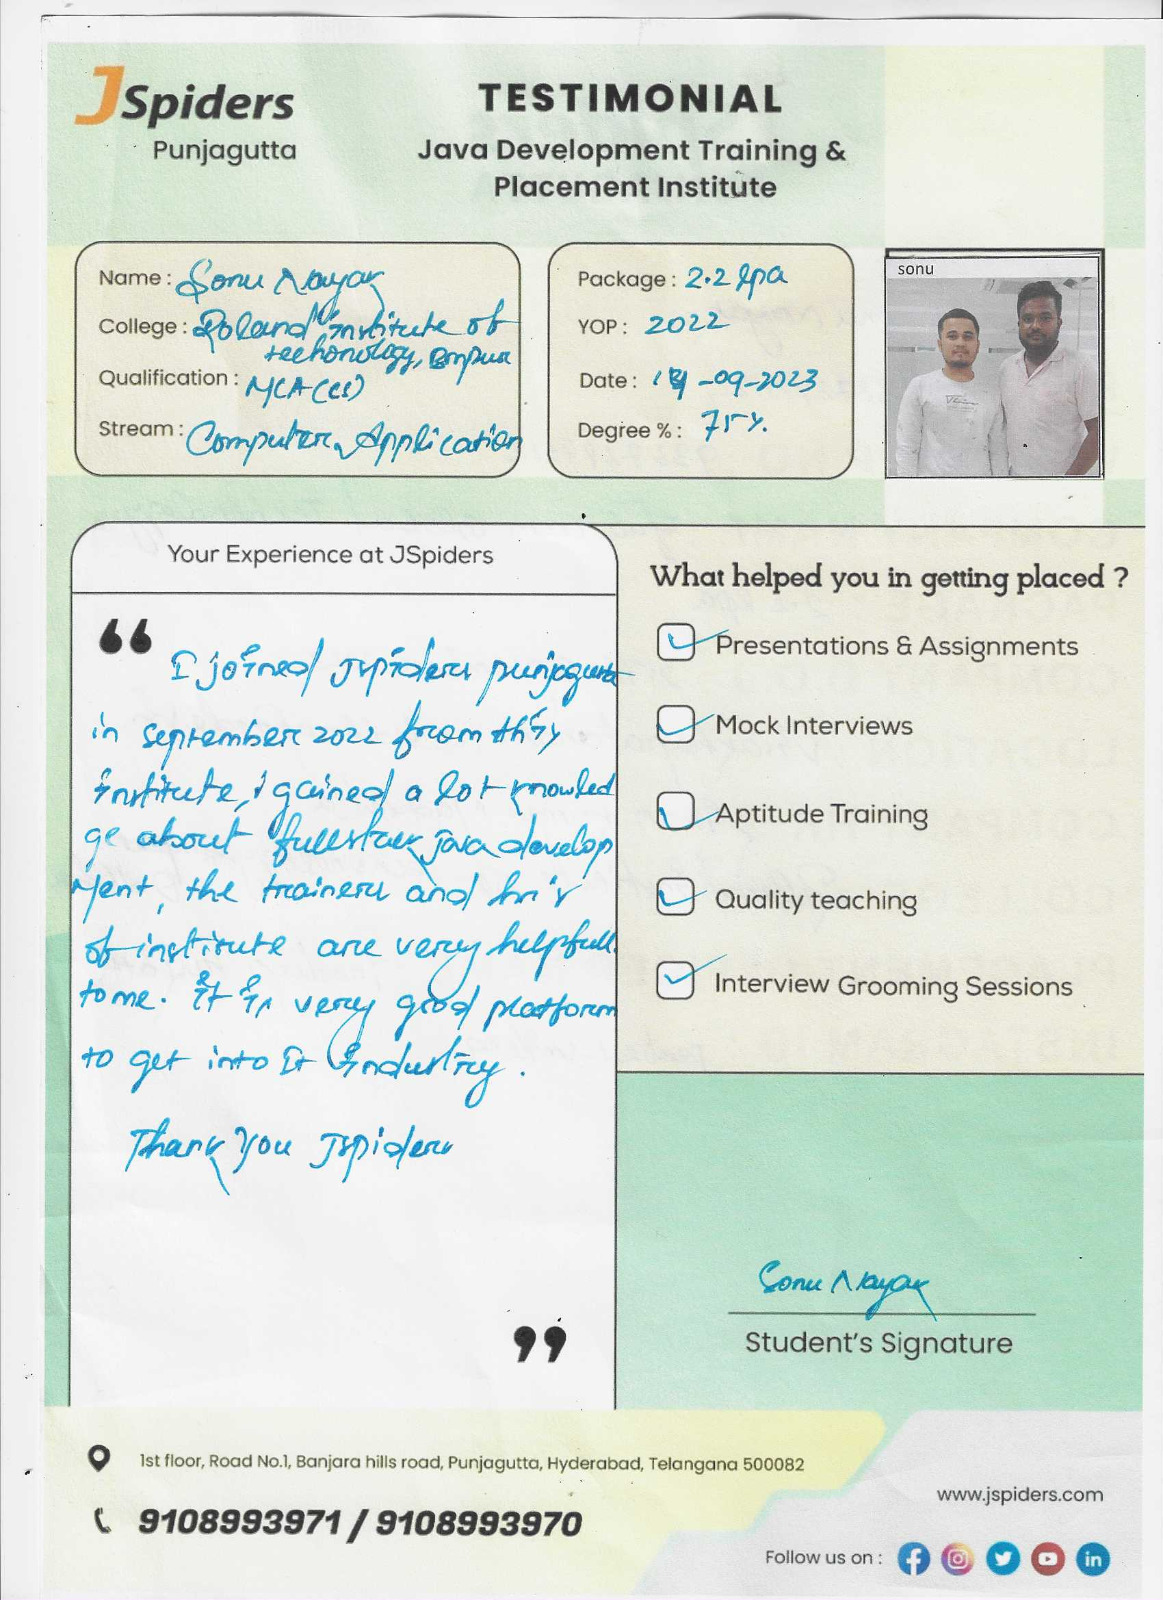 JSpiders
Punjagutta
TESTIMONIAL
Java Development Training &
Placement Institute
Name : Sonu Nayak
College : Roland Institute of
techonology, Bmpur
Qualification : MCA(CS)
Stream : Computer Application
Package : 2.2 lpa
YOP : 2022
Date : 14-09-2023
Degree % : 75%.
sonu
Your Experience at JSpiders
“
I joined Jspiders punjagutta
in september 2022 from this
institute, i gained a lot knowled
ge about fullstack java develop
ment, the trainers and hr's
of institute are very helpfull
to me. It is very good platform
to get into It Industry.
Thank You Jspiders
”
What helped you in getting placed ?
Presentations & Assignments
Mock Interviews
Aptitude Training
Quality teaching
Interview Grooming Sessions
Sonu Nayak
Student's Signature
1st floor, Road No.1, Banjara hills road, Punjagutta, Hyderabad, Telangana 500082
9108993971 / 9108993970
www.jspiders.com
Follow us on :